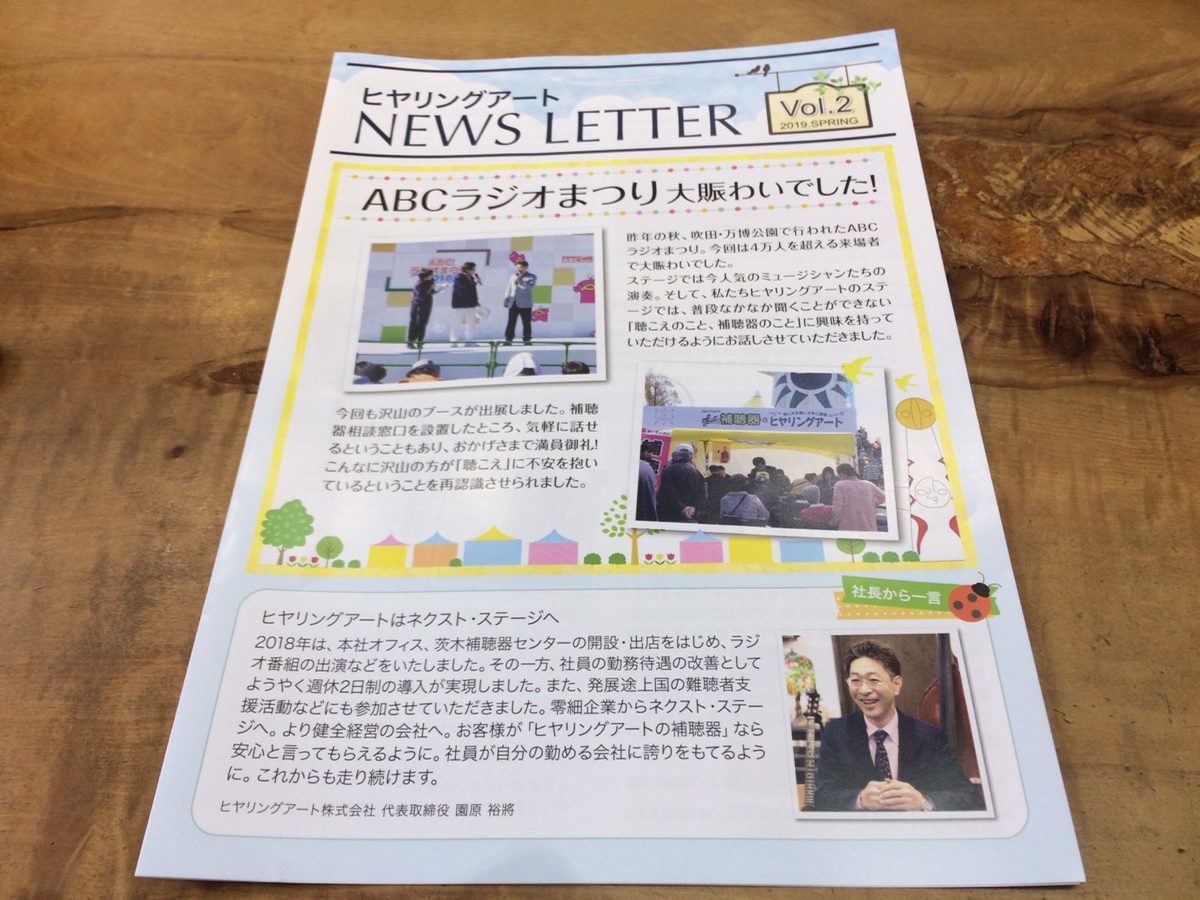 ヒヤリングアート
NEWS LETTER
Vol.2
2019.SPRING
ABCラジオまつり 大賑わいでした!
昨年の秋、吹田・万博公園で行われたABC
ラジオまつり。今回は4万人を超える来場者
で大賑わいでした。
ステージでは今人気のミュージシャンたちの
演奏。そして、私たちヒヤリングアートのステ
ージでは、普段なかなか聞くことができない
「聴こえのこと、補聴器のこと」に興味を持って
いただけるようにお話しさせていただきました。
ABC
ラジオまつり
今回も沢山のブースが出展しました。補聴
器相談窓口を設置したところ、気軽に話せ
るということもあり、おかげさまで満員御礼!
こんなに沢山の方が「聴こえ」に不安を抱い
ているということを再認識させられました。
補聴器のヒヤリングアート
社長から一言
ヒヤリングアートはネクスト・ステージへ
2018年は、本社オフィス、茨木補聴器センターの開設・出店をはじめ、ラジ
オ番組の出演などをいたしました。その一方、社員の勤務待遇の改善として
ようやく週休2日制の導入が実現しました。また、発展途上国の難聴者支
援活動などにも参加させていただきました。零細企業からネクスト・ステー
ジへ。より健全経営の会社へ。お客様が「ヒヤリングアートの補聴器」なら
安心と言ってもらえるように。社員が自分の勤める会社に誇りをもてるよう
に。これからも走り続けます。
ヒヤリングアート株式会社 代表取締役 園原 裕將